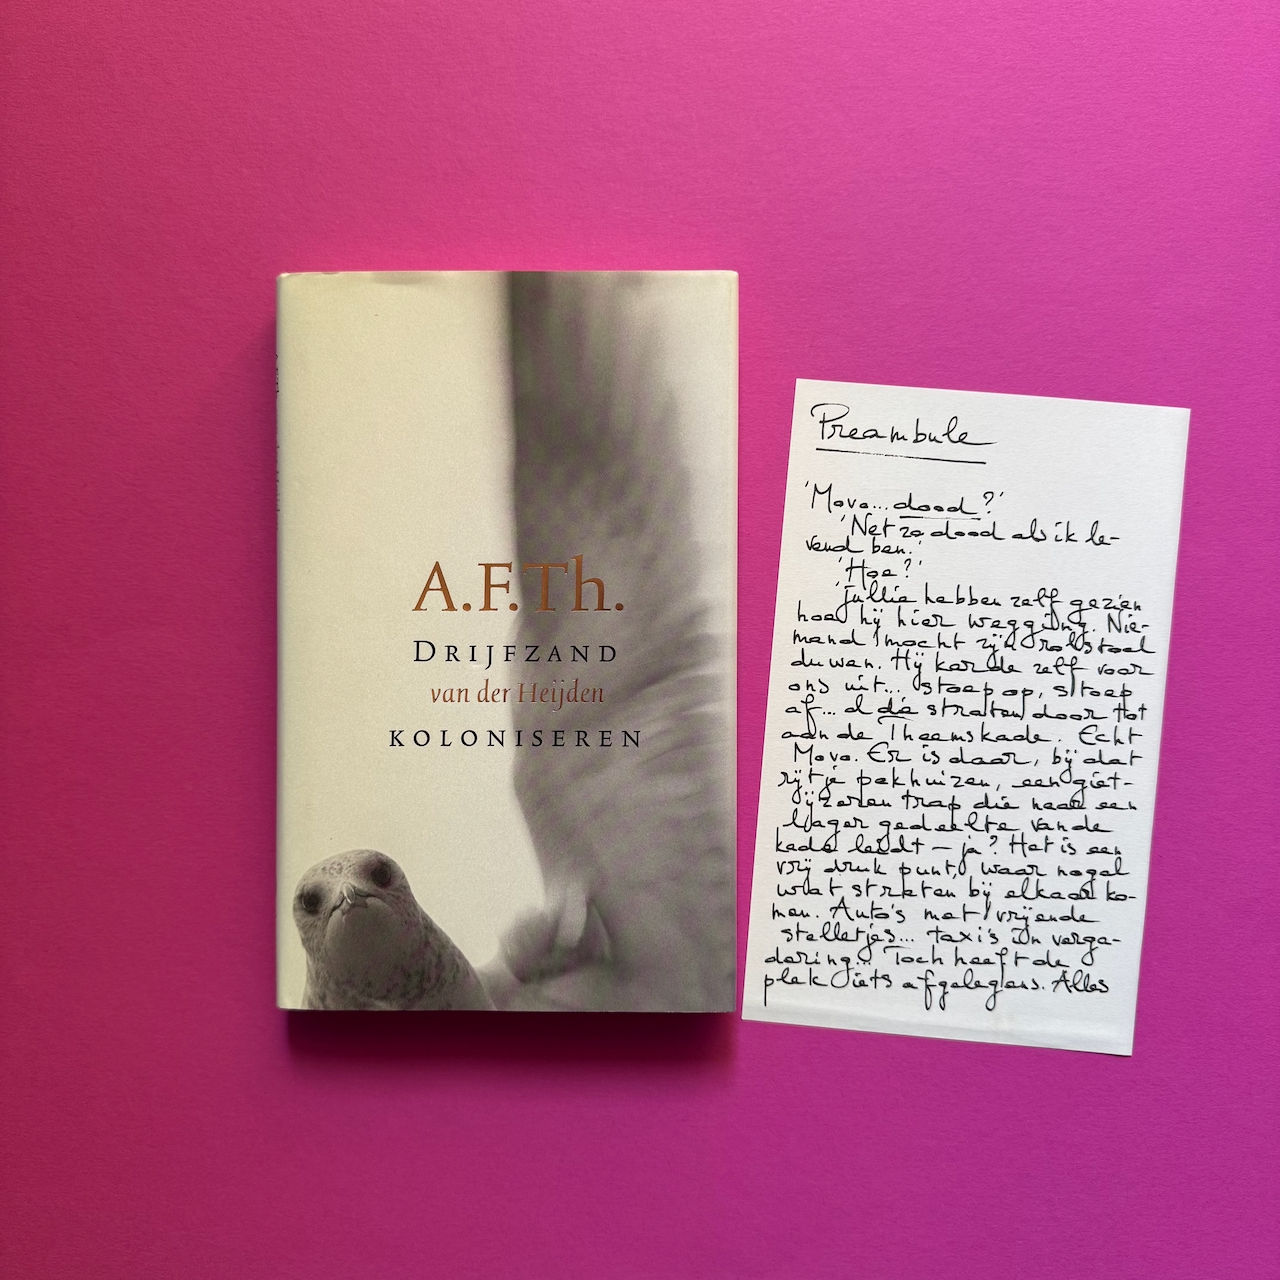 A.F.Th.
DRIJFZAND
van der Heijden
KOLONISEREN
Preambule
'Movo... dood?'
'Net zo dood als ik le-
vend ben.'
'Hoe?'
'Jullie hebben zelf gezien
hoe hij hier wegging. Nie-
mand mocht zijn rolstoel
duwen. Hij karde zelf voor
ons uit... stoep op, stoep
af... al die straten door tot
aan de Theemskade. Echt
Movo. Er is daar, bij dat
rijtje pakhuizen, een giet-
ijzeren trap die naar een
lager gedeelte van de
kade leidt – ja? Het is een
vrij druk punt, waar nogal
wat straten bij elkaar ko-
men. Auto's met vrijende
stelletjes... taxi's in verga-
dering... Toch heeft de
plek iets afgelegens. Alles